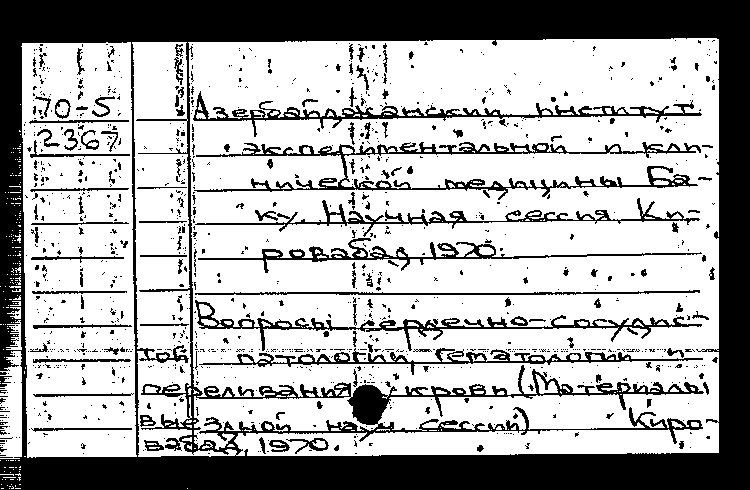 70-5
2367
Азербайджанский институт
экспериментальной и кли-
нической медицины Ба-
ку. Научная сессия Ки-
ровабад, 1970.
Вопросы сердечно-сосудис-
той патологии, гематологии и
переливания крови (Материалы
выездной науч. сессии) Киро-
вабад, 1970.